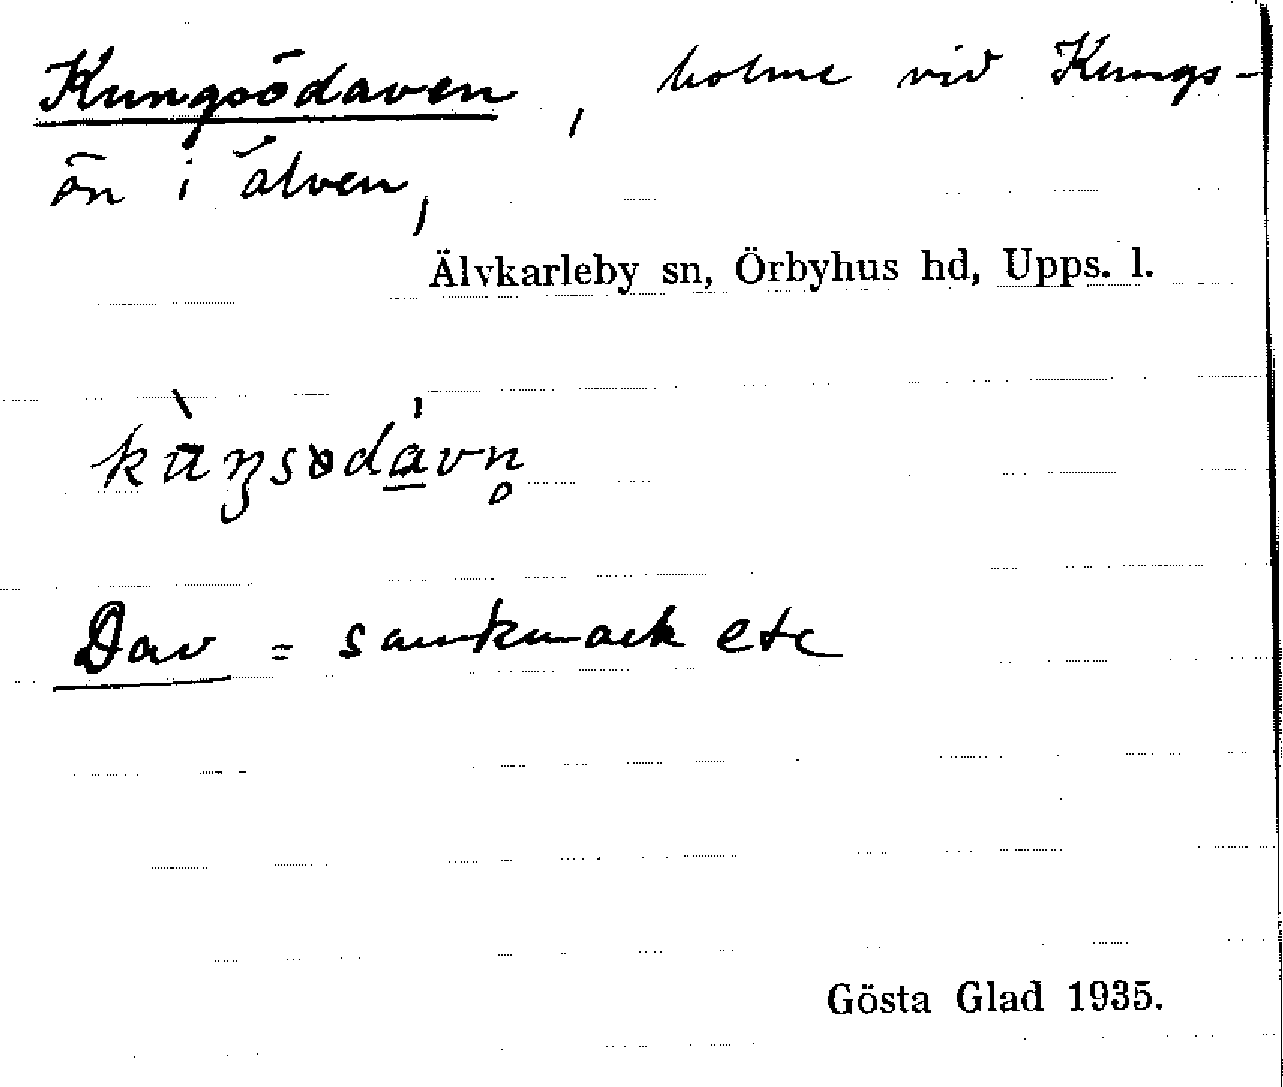 Kungsödaven, holme vid Kungs-
ön i älven,
Älvkarleby sn, Örbyhus hd, Upps. l.
Dav = sankmark etc
Gösta Glad 1935.